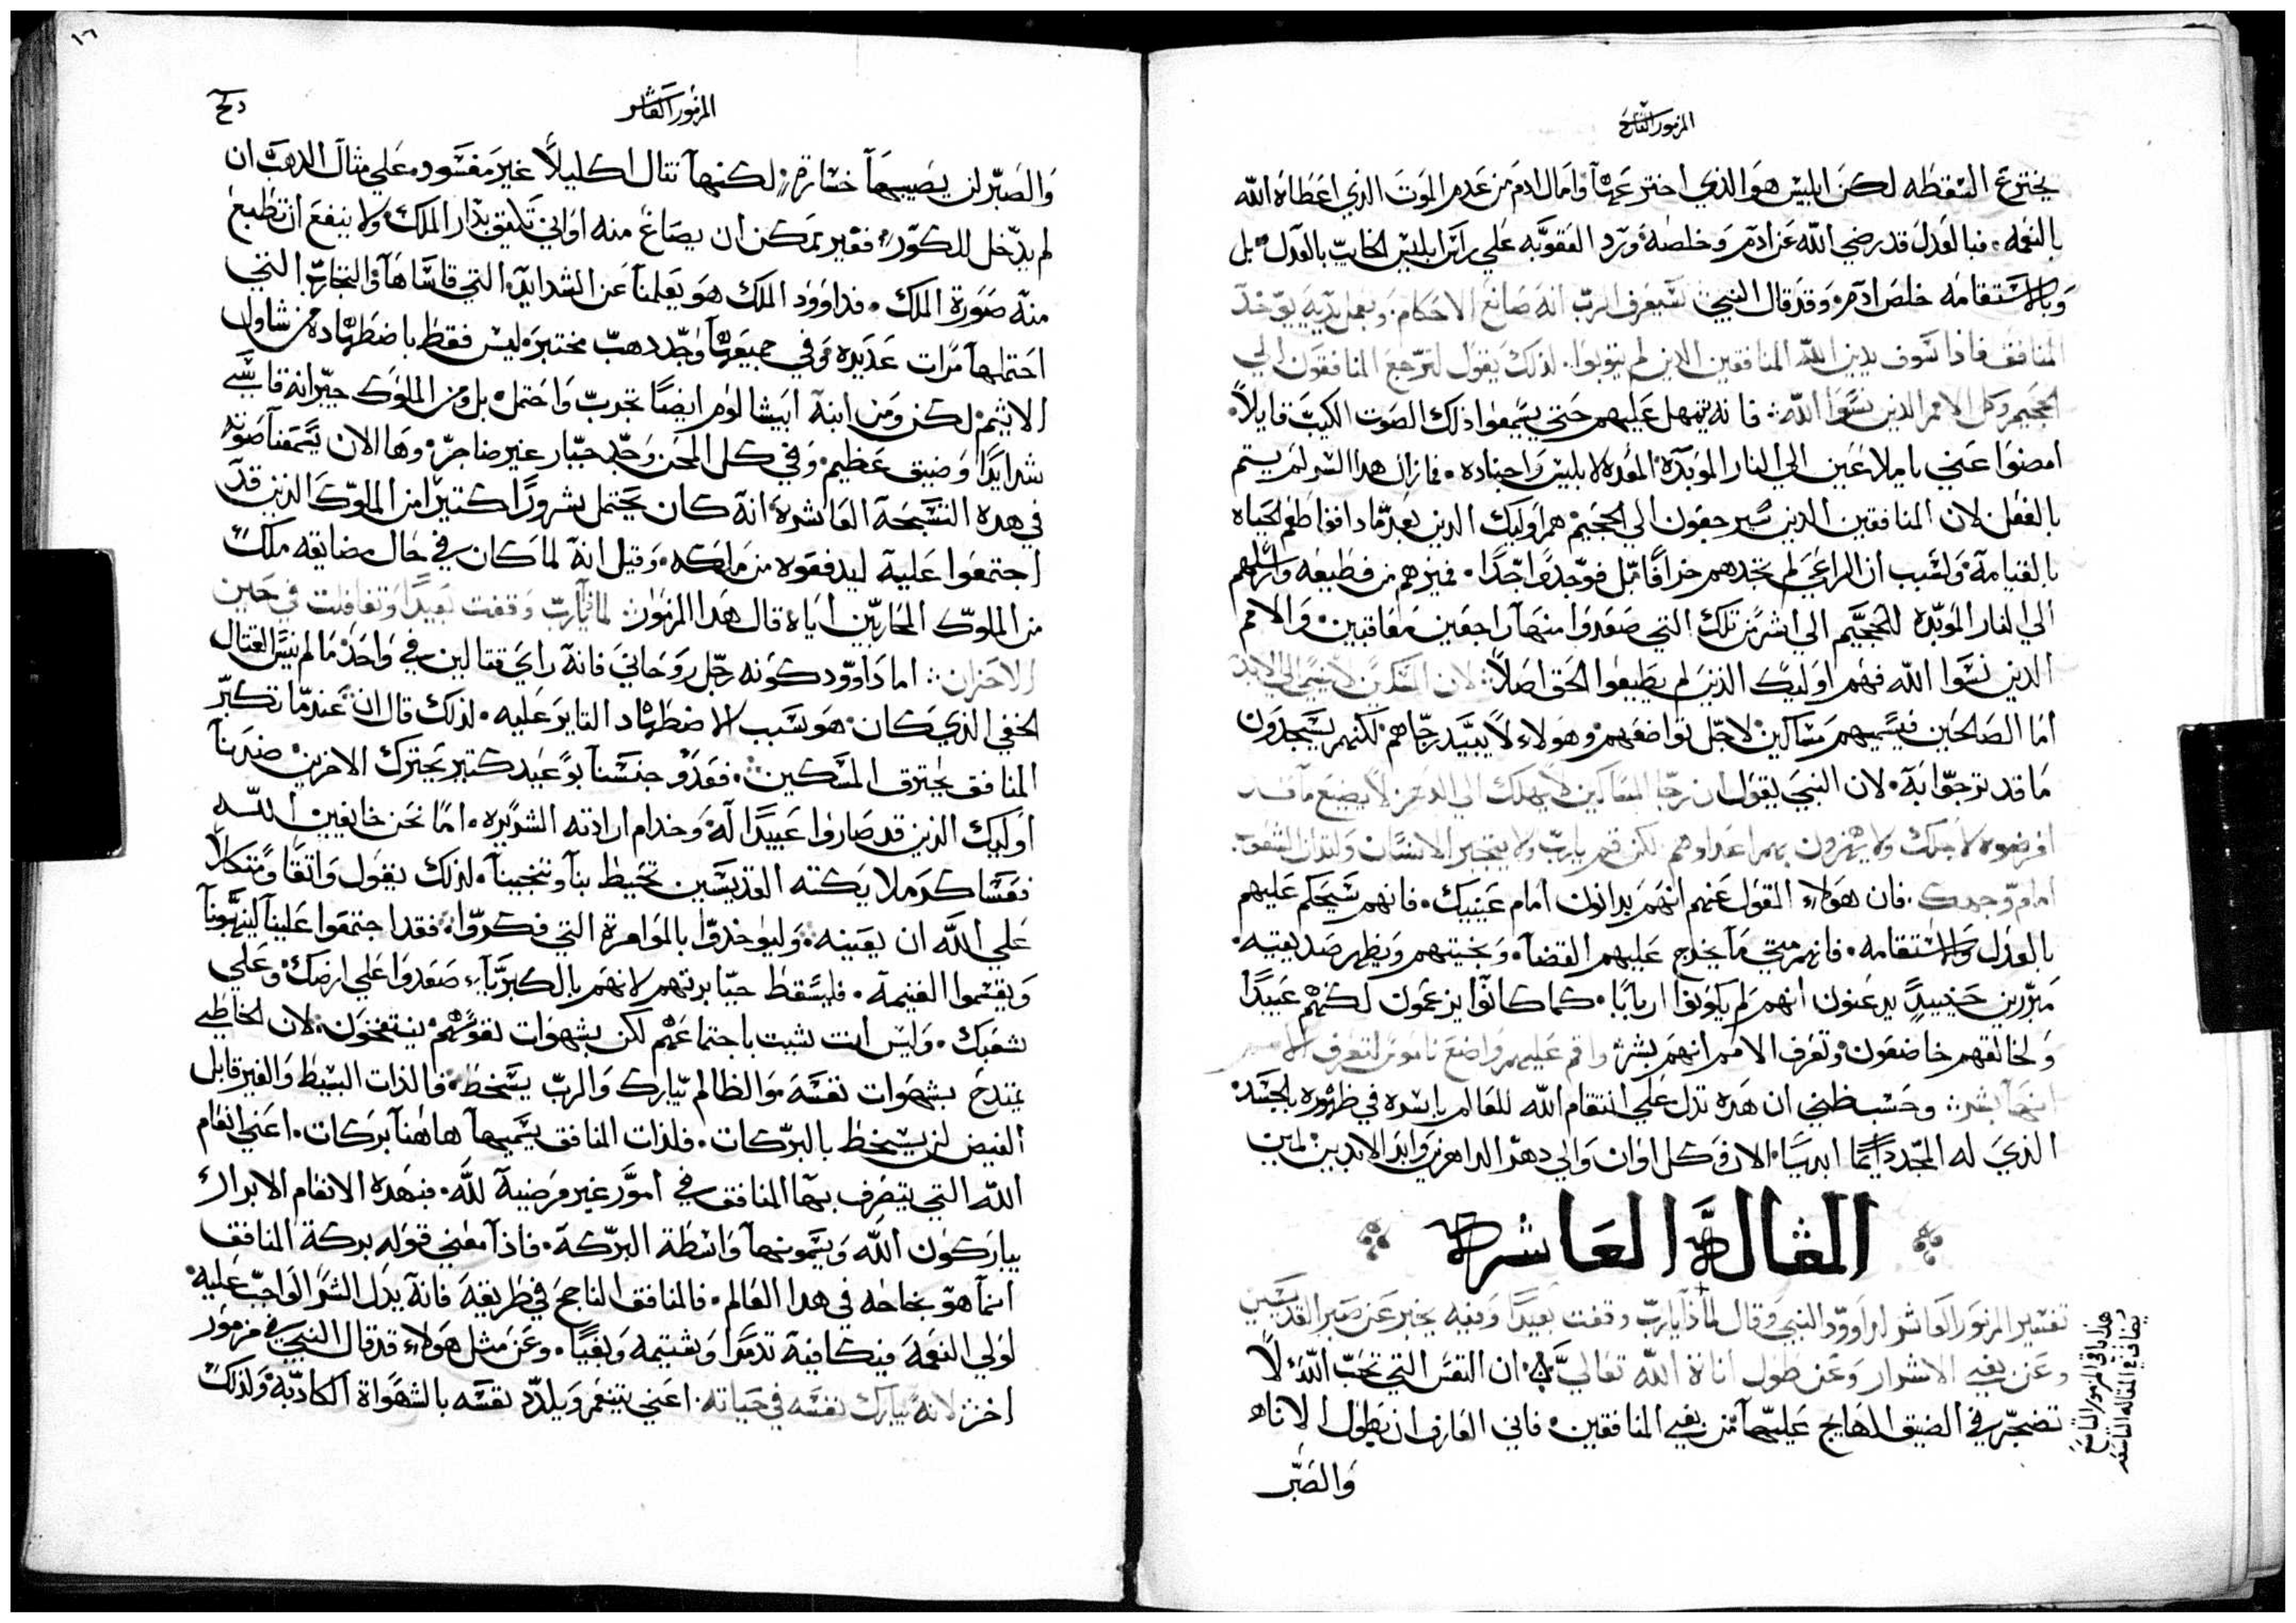 المزمور التاسع
يخترع السقطه لكن ابليس هو الذي اخترعها وامال ادم من عدم الموت الذي اعطاه الله
بالنعمه. فبالعدل قد رضي الله عن ادم وخلصه ورد العقوبه علي راس ابليس الخايب بالعدل بل
وبالاستقامه خلص ادم وقد قال النبي سيعرف الرب انه صانع الاحكام وبعمل يديه يوخد
المنافق فاذا سوف يدين الله المنافقين الدين لم يتوبوا. لذلك يقول لترجع المنافقون الي
الجحيم وكل الامم الدين نسوا الله فانه يتمهل عليهم حتي يسمعوا ذلك الصوت الكيب قايلاً
امضوا عني ياملاعين الي النار الموبده المعده لابليس واجناده. فمازال هدا الشر لم يتم
بالفعل لان المنافقين الدين سيرجعون الي الجحيم هم اوليك الدين بعدما دافوا طعم الحياه
بالقيامة ولسبب ان الراعي لم تجدهم خرافا بل فوجدهم اجدا. فميزهم من قطيعه وارسلهم
الي النار الموبده للجحيم الي اشر من تلك التي صعدوا منها راجعين معاقبين والامم
الدين نسوا الله فهم اوليك الذين لم يطيعوا الحق اصلاً لان المسكين لا ينسي الي الابد
اما الصالحين فيسميهم مساكين لاجل تواضعهم وهولاء لا يبيد رجاهم لكنهم يسجدون
ما قد ترجوا به لان النبي يقول ان رجا المساكين لا يهلك الي الدهر لا يضيع ما قد
افرضوه لاجلك ولا يهزون بهم اعداوهم لكن قم يارب ولا يتجبر الانسان ولتدان الشعوب
امام وجهك. فان هولاء القول عنهم انهم يدانون امام عينيك. فانهم سيحكم عليهم
بالعدل والاستقامه. فانهم متي ما يخرج عليهم القضا. وبخيتهم ويظهر صديقيه
مبررين حينيدٍ يدعنون انهم لم يكونوا اربابا. كما كانوا يزعمون لكنهم عبيدًا
ولخالقهم خاضعون وتعرف الامم انهم بشر واقم عليهم واضع ناموس لتعرف الامم
انها بشر وحسب ظني ان هده تدل علي انتقام الله للعالم باسره في ظهوره بالجسد
الذي له المجد دايمًا ابديا الان وكل اوان والي دهر الداهرين وابد الابدين امين
المقالة العاشره
تفسير المزمور العاشر لداوود النبي وقال لماذا يارب وقفت بعيدًا وفيه يخبر عن صبر القديسين
وعن بغي الاشرار وعن طول اناة الله تعالي ان النفس التي تحب الله لا
تضجر في الضيق الهايج عليها من بغي المنافقين فاني العارف ان بطول الاناه
والصبر
هذا باقي المزمور التاسع
يضاف في المقاله التاسعه
١٦
المزمور العاشر
والصبر لن يصيبها خسارة لكنها تنال اكليلاً غير مفسود علي مثال الدهب ان
لم يدخل للكور فغير ممكن ان يصاغ منه اواني تليق بدار الملك ولا ينفع ان تطبع
منه صورة الملك. فداوود الملك هو يعلمنا عن الشدايد التي قاساها والتجارب التي
احتملها مرات عديده وفي جميعها وجد دهب مختبر ليس فقط باضطهاده من شاول
الاثيم لكن ومن ابنه ابيشالوم ايضًا تجرب واحتمل بل ومن الملوك جيرانه قاسي
شدايدًا وضيق عظيم وفي كل المحن وجد جبار غير ضاجر وها الان يسمعنا صوته
في هده التسبحة العاشره انه كان يحتمل شرورًا كتيرا من الملوك الدين قد
اجتمعوا عليه ليدفعوه من ملكه وقيل انه لما كان في حال مضايقه ملك
من الملوك المحاربين اياه قال هدا المزمور لماذا يارب وقفت بعيدًا وتغافلت في حين
الاحزان اما داوود كونه رجل روحاني فانه راي قتالين في واحد ما لم ينس القتال
الخفي الذي كان هو سبب الاضطهاد التاير عليه. لذلك قال ان عندما تكبر
المنافق يحترق المسكين. فعدو جنسنا بوعيد كتير يحترك الاخرين ضدنا
اوليك الذين قد صاروا عبيدًا له وخدام ارادته الشريره. اما نحن خايفين الله
فعساكر ملايكته القديسين تحيط بنا وتنجينا. لذلك يقول واتقا ومتكلاً
علي الله ان يعينه وليوخدوا بالموامرة التي فكروا فقد اجتمعوا علينا لينهبونا
ويقسموا الغنيمة. فليسقط جبابرتهم لانهم بالكبرياء صعدوا علي ارضك وعلي
شعبك. وليس انت تسيت باجتماعهم لكن بشهوات نفوسهم ينتفخون لان الخاطي
يمتدح بشهوات نفسه والظالم يبارك والرب يسخط فالذات البسيط والغير قابل
الغيض لن يسخط بالبركات. فلذات المنافق يسميها هاهنا بركات. اعني انعام
الله التي يتصرف بها المنافق في امور غير مرضية لله. فبهده الانعام الابرار
يباركون الله ويسمونها واسطة البركة. فاذا معني قوله بركة المنافق
انما هو نجاحه في هدا العالم. فالمنافق الناجح في طريقه فانه بدل الشكر الواجب عليه
لولي النعمه فيكافيه تدمرا وشتيمه وبغيًا. وعن مثل هولاء قد قال النبي في مزمور
اخر لانه يبارك نفسه في حياته. اعني يتنعم ويلدد نفسه بالشهواة الكادبه ولذلك